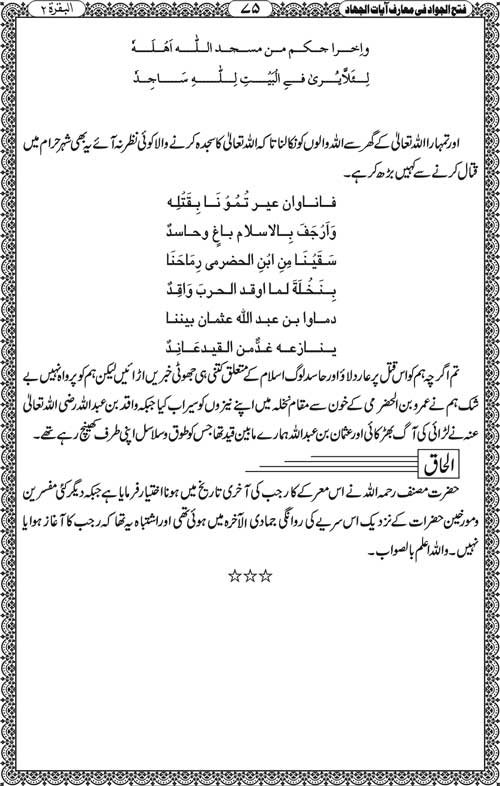 فتح الجواد فی معارف آیات الجهاد
۷۵
البقرة ۲
واخرا حکم من مسجد اللہ اهلهٗ
لِئَلَّا یُریٰ فی الْبَیْتِ لِلّٰہِ سَاجِدٗ
اور تمہارا اللہ تعالیٰ کے گھر سے اللہ والوں کو نکالنا تاکہ اللہ تعالیٰ کا سجدہ کرنے والا کوئی نظر نہ آئے یہ بھی شہر حرام میں
قتال کرنے سے کہیں بڑھ کر ہے۔
فاناوان عیر تُمُوْنَا بِقَتْلِه
وَاَرْجَفَ بِالاسلام باغٍ وحاسدٌ
سَقَیْنَا مِنِ ابْنِ الحضرمی رِمَاحَنَا
بِنَخْلَةَ لما اوقد الحربَ وَاقِدٌ
دماوا بن عبد الله عثمان بیننا
ینازعه غلٌّ من القیدعَانِدٌ
تم اگرچہ ہم کو اس قتل پر عار دلاؤ اور حاسد لوگ اسلام کے متعلق کتنی ہی جھوٹی خبریں اڑائیں لیکن ہم کو پرواہ نہیں بے
شک ہم نے عمرو بن الحضرمی کے خون سے مقام نخلہ میں اپنے نیزوں کو سیراب کیا جبکہ واقد بن عبداللہ رضی اللہ تعالیٰ
عنہ نے لڑائی کی آگ بھڑکائی اور عثمان بن عبداللہ ہمارے مابین قید تھا جس کو طوق و سلاسل اپنی طرف کھینچ رہے تھے۔
الحاق
حضرت مصنف رحمہ اللہ نے اس معرکے کا رجب کی آخری تاریخ میں ہونا اختیار فرمایا ہے جبکہ دیگر کئی مفسرین
ومورخین حضرات کے نزدیک اس سریے کی روانگی جمادی الآخرہ میں ہوئی تھی اور اشتباہ یہ تھا کہ رجب کا آغاز ہوا یا
نہیں۔ واللہ اعلم بالصواب۔
☆☆☆